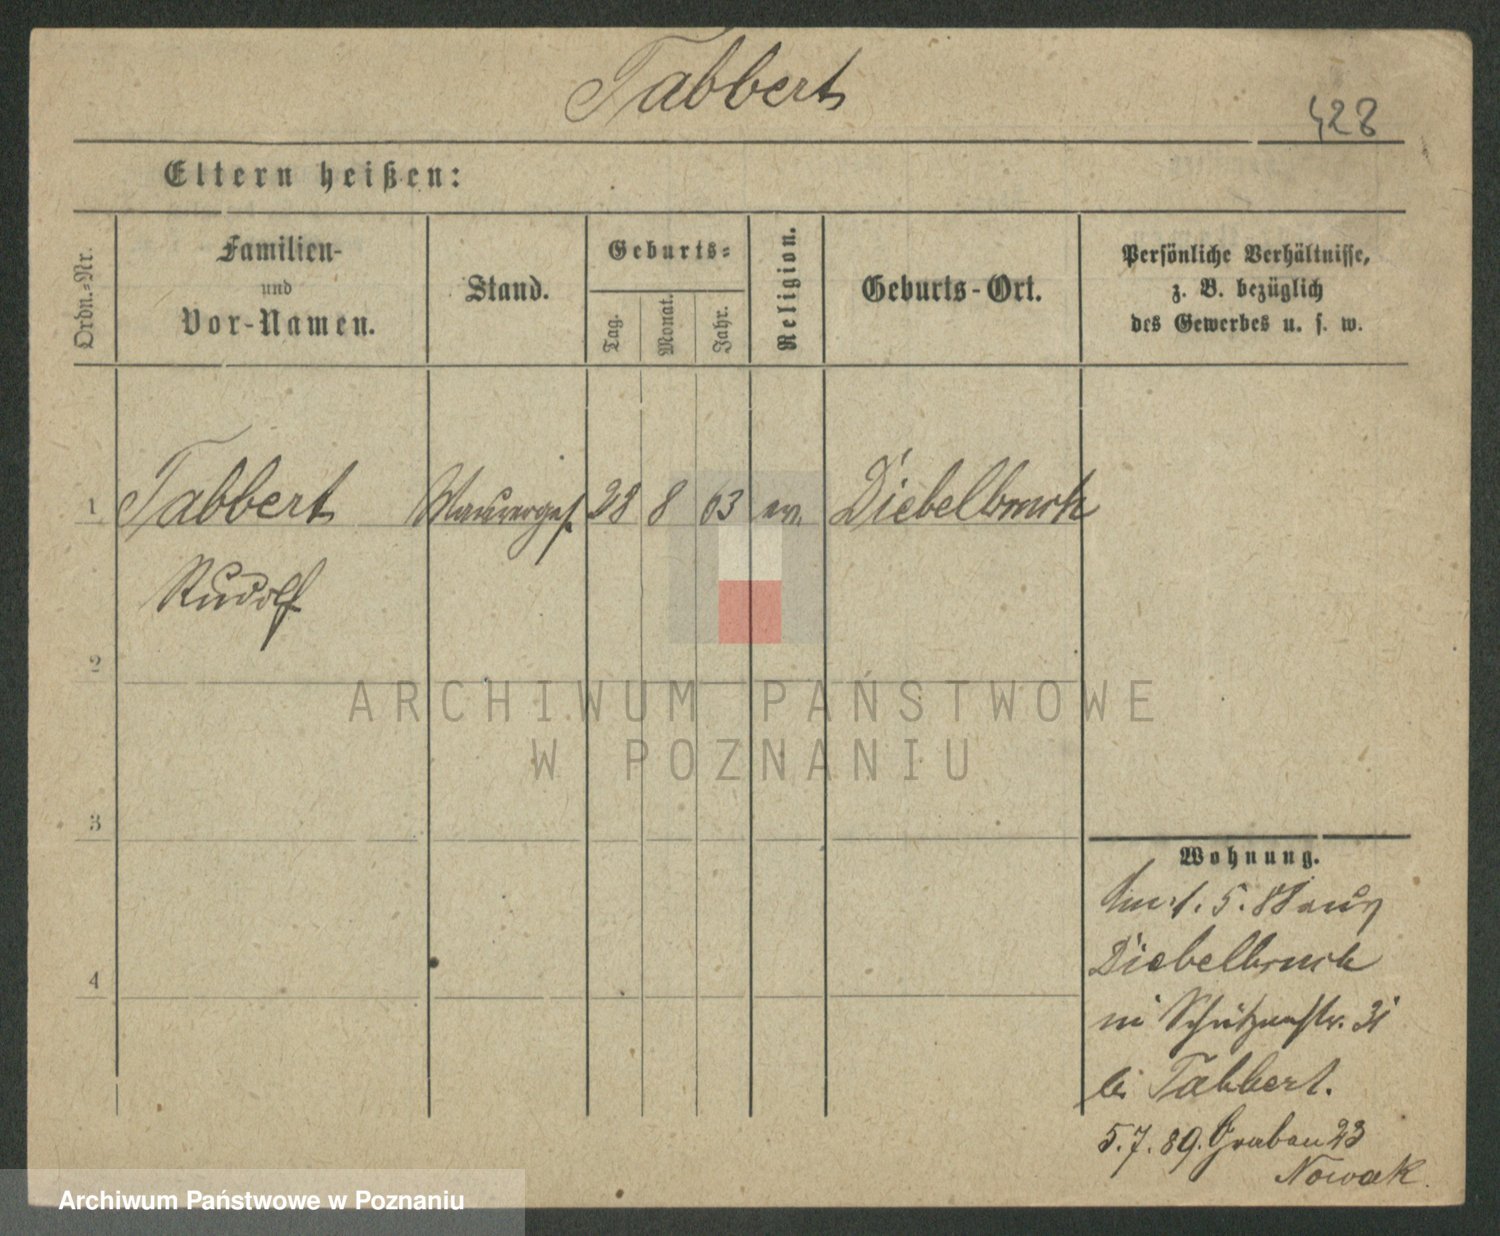 Tabbert
428
Eltern heißen:
Ordn.-Nr.
Familien-
und
Vor-Namen.
Stand.
Geburts-
Tag.
Monat.
Jahr.
Religion.
Geburts-Ort.
Persönliche Verhältnisse,
z. B. bezüglich
des Gewerbes u. s. w.
1 Tabbert Maurerges. 28 8 63 ev. Diebelbruch
Rudolf
2
3
4
Wohnung.
1. 5. 88 aus
Diebelbruch
Schützenstr. 31
bei Tabbert.
5. 7. 89. Graben 23
Nowak.
ARCHIWUM PAŃSTWOWE
W POZNANIU
Archiwum Państwowe w Poznaniu